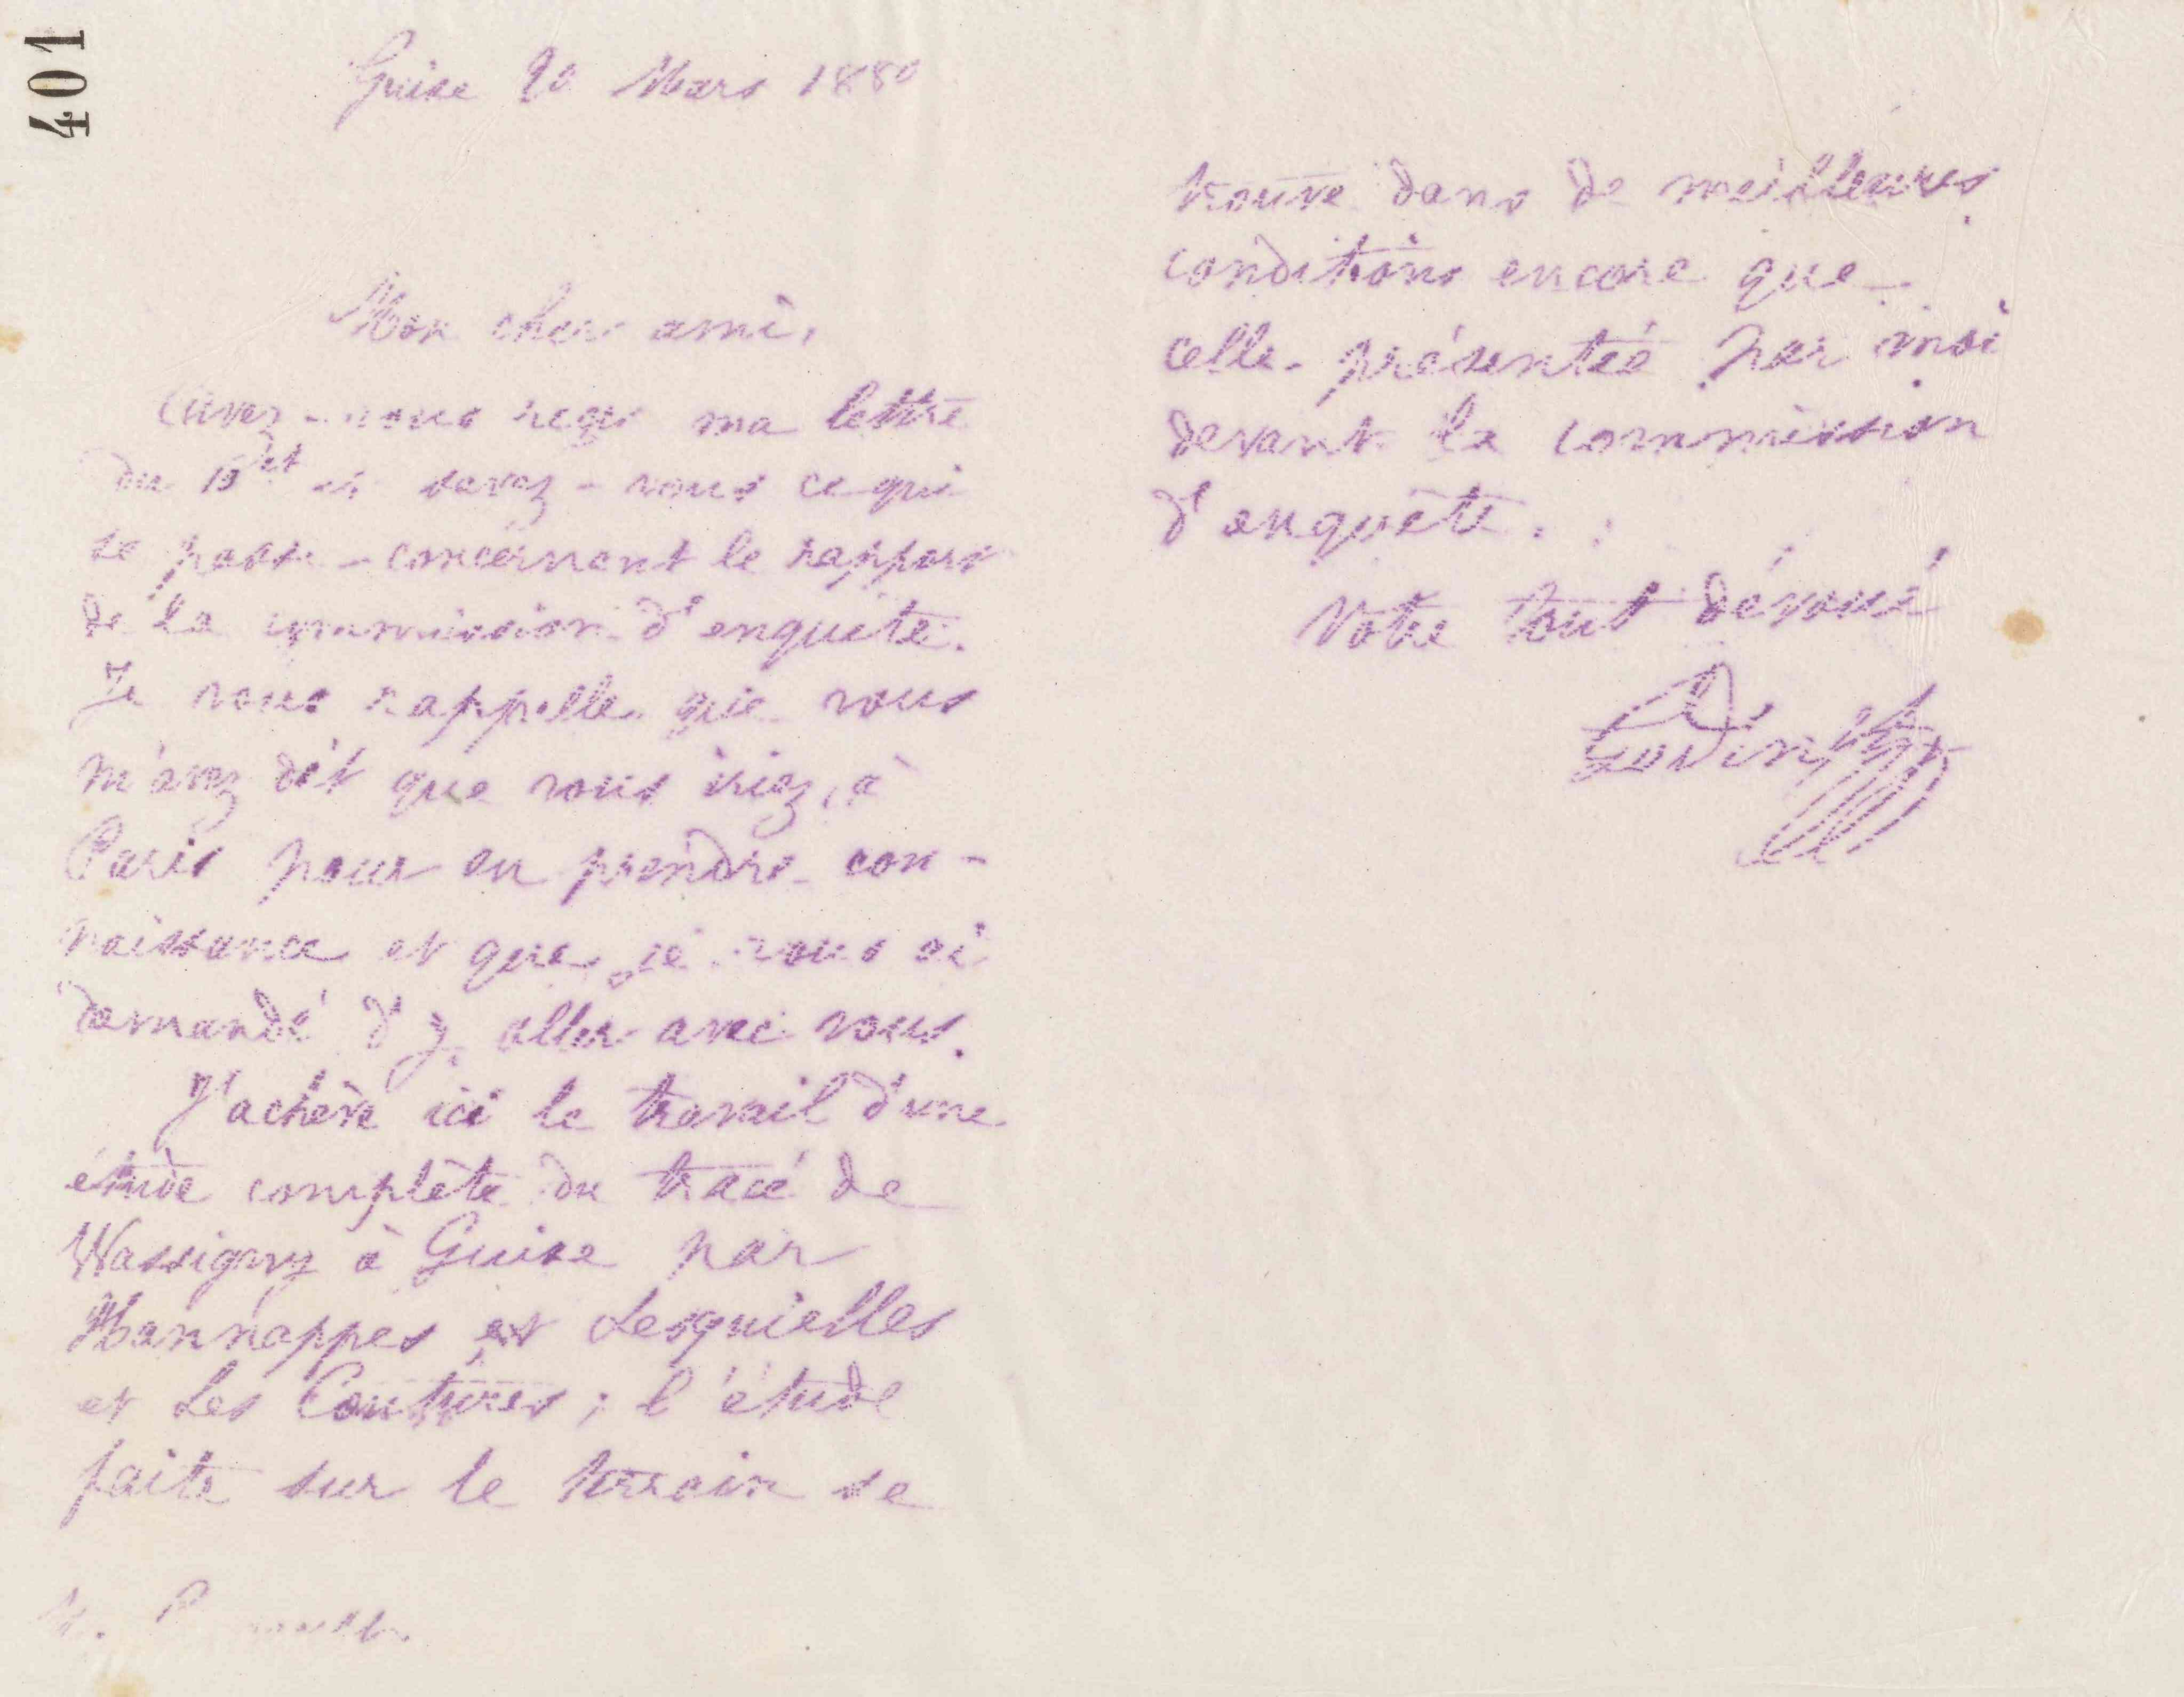 401
Guise 20 Mars 1880
Mon cher ami,
Avez-vous reçu ma lettre
du 15 et savez-vous ce qui
se passe concernant le rapport
de la commission d'enquête.
Je vous rappelle que vous
m'avez dit que vous iriez à
Paris pour en prendre con-
naissance et que je vous ai
demandé d'y aller avec vous.
J'achève ici le travail d'une
étude complète du tracé de
Wassigny à Guise par
Hannappes et Lesquielles
et Les Coutures ; l'étude
faite sur le terrain se
M.
trouve dans de meilleures
conditions encore que
celle présentée par moi
devant la commission
d'enquête.
Votre tout dévoué
Godin